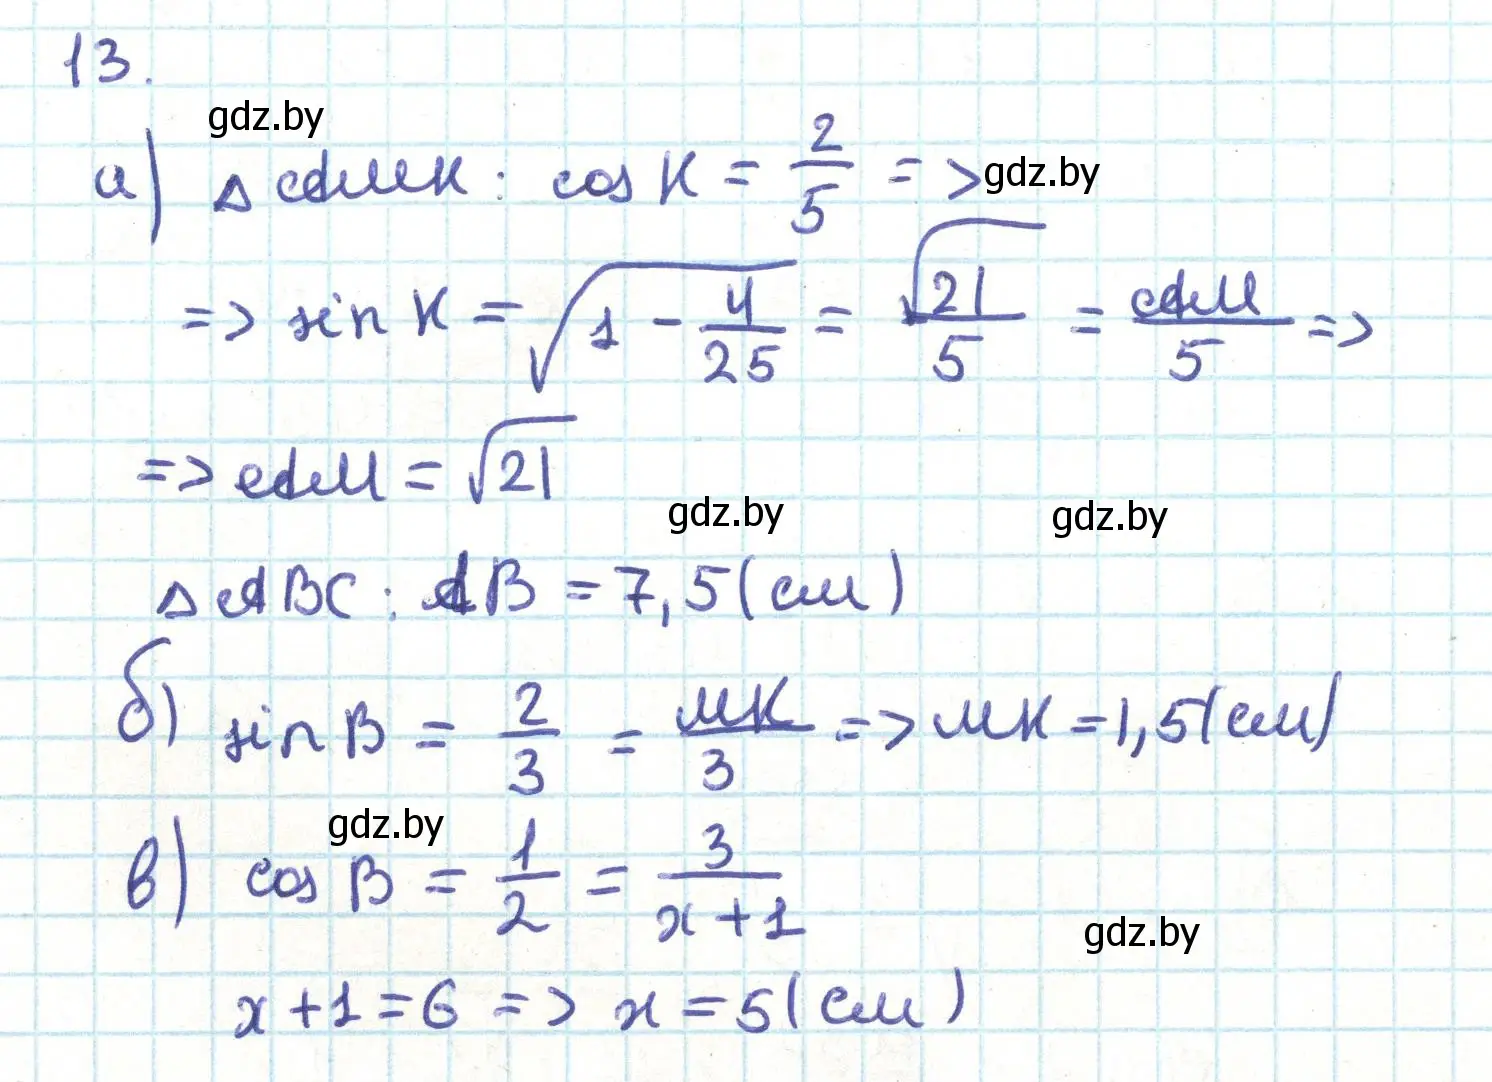 13.
gdz.by
а) △AMK: cos K = 2/5 =>
gdz.by
=> sin K = √(1 - 4/25) = √21/5 = AM/5 =>
=> AM = √21
gdz.by gdz.by
△ABC: AB = 7,5 (см)
б) sin B = 2/3 = MK/3 => MK = 1,5 (см)
gdz.by
в) cos B = 1/2 = 3/(x+1)
gdz.by
x+1=6 => x = 5 (см)